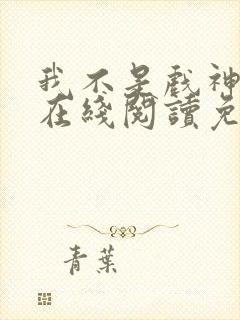 我不是戲神
在綫閱讀免
青葉